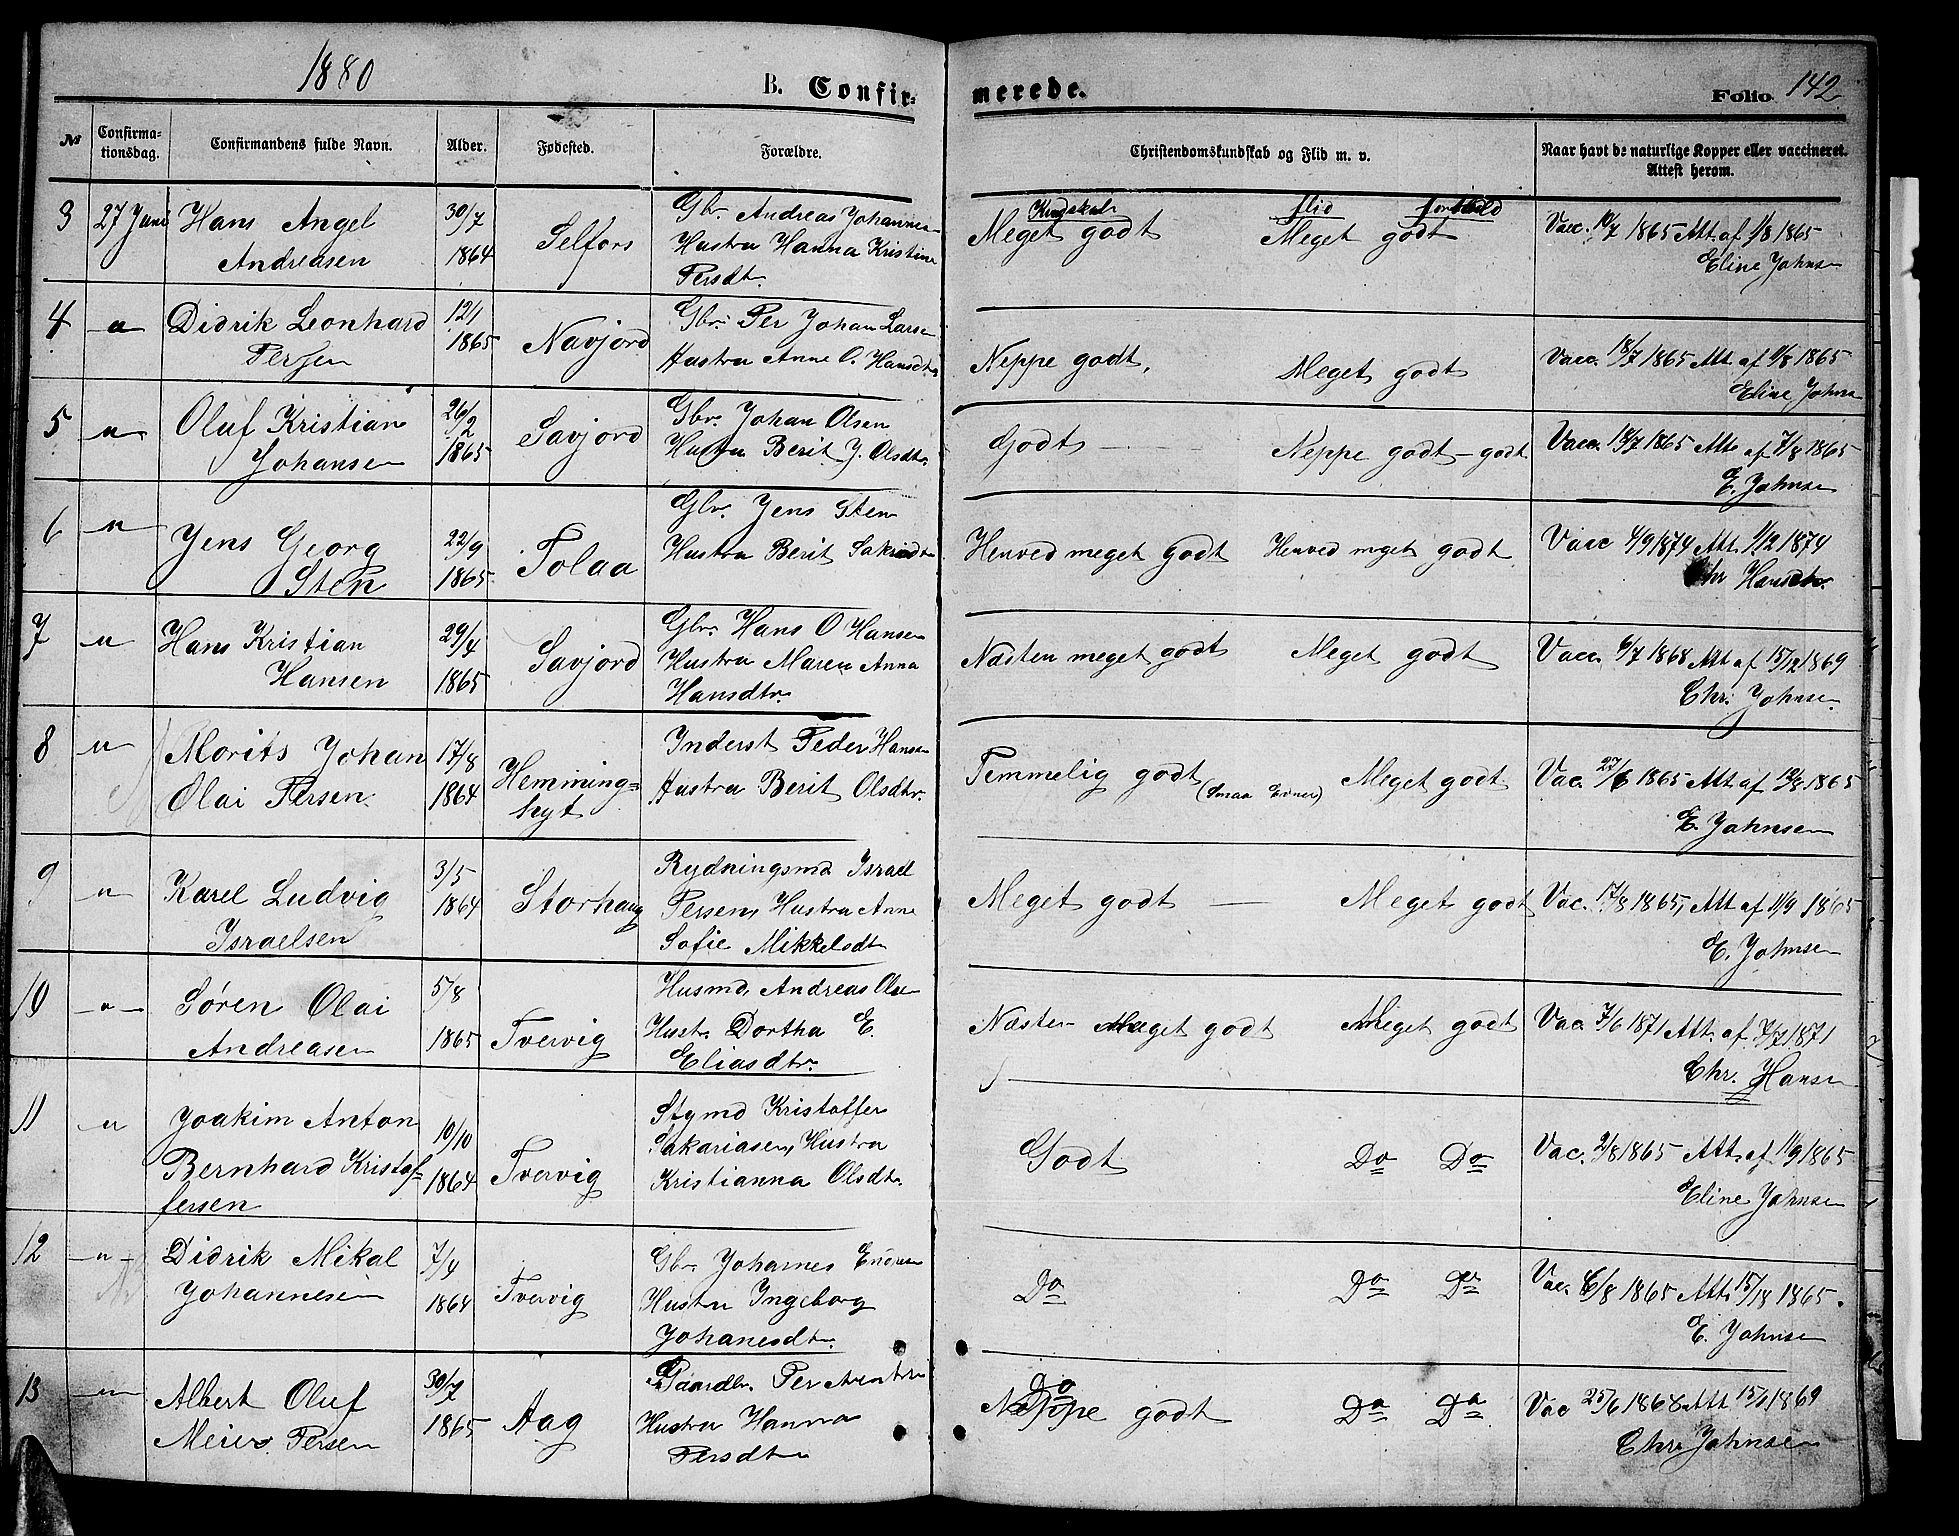 1880
B. Confir-
merede.
Folio 142
No
Confirma-
tionsdag.
Confirmandens fulde Navn.
Alder.
Fødested.
Forældre.
Christendomskundskab og Flid m. v.
Naar havt de naturlige Kopper eller vaccineret.
Attest herom.
3 27 Juni Hans Angel 30/7 Selfors Gbr. Andreas Johannes
Andreasen 1864 Hustru Hanna Kristine
Persdtr.
Kundskab Flid Forhold
Meget godt Meget godt Vacc. 10/7 1865 Att. af 1/8 1865
Eline Johnsen
4 " Didrik Leonhard 12/1 Navjord Gbr. Per Johan Larsen
Persen 1865 Hustru Anne O. Hansdtr.
Neppe godt, Meget godt Vacc. 18/7 1865 Att. af 1/8 1865
Eline Johnsen
5 " Oluf Kristian 26/2 Savjord Gbr. Johan Olsen
Johansen 1865 Hustru Berit J. Olsdtr.
Godt — Neppe godt - godt Vacc. 18/7 1865 Att. af 7/8 1865
E. Johnsen
6 " Jens Georg 22/9 Tolaa Gbr. Jens Sten
Sten 1865 Hustru Berit
Henved meget godt Henved mget godt Vacc 4/9 1874 Att. 1/12 1874
Chr Hansdtr.
7 " Hans Kristian 29/4 Savjord Gbr. Hans O Hansen
Hansen 1865 Hustru Maren Anna
Hansdtr.
Næsten meget godt Meget godt Vacc. 6/7 1868 Att af 15/12 1869
Chr. Johnsen
8 " Morits Johan 17/8 Hemming= Inderst Peder Hansen
Olai Persen 1864 hyt Hustru Berit Olsdtr.
Temmelig godt (Smaa Evner) Meget godt Vac. 27/6 1865 Att af 12/8 1865
E. Johnsen
9 " Karel Ludvig 3/5 Storhaug Rydningsmd Israel
Israelsen 1864 Persen, Hustru Anne
Sofie Mikkelsdtr
Meget godt — Meget godt Vac. 17/8 1865, Att af 1/9 1865
E. Johnsen
10 " Søren Olai 5/8 Tvervig Husmd. Andreas Olsen
Andreasen 1865 Hustr. Dortha E.
Eliasdtr.
Næsten Meget godt Meget godt Vac. 7/6 1871 Att. af 7/7 1871
Chr. Hansen
11 " Joakim Anton 10/10 Tvervig Stymd Kristoffer
Bernhard Kristof- 1864 Sakariasen, Hustru
fersen Kristianna Olsdtr.
Godt Do Do Vac. 2/8 1865 Att. af 1/9 1865
Eline Johnsen
12 " Didrik Mikal 7/4 Tvervig Gbr. Johannes Endresen
Johannesen 1864 Hustru Ingeborg
Johanesdtr.
Do Do Do Vac. 6/8 1865 Att. 1865.
E. Johnsen
13 " Albert Oluf 30/7 Aag Gaardbr. Per
Meier Persen 1865 Hustru Hanna
Persdtr
Do
Neppe godt Do Do Vac 25/6 1868 Att 1869
Chr. Johnsen